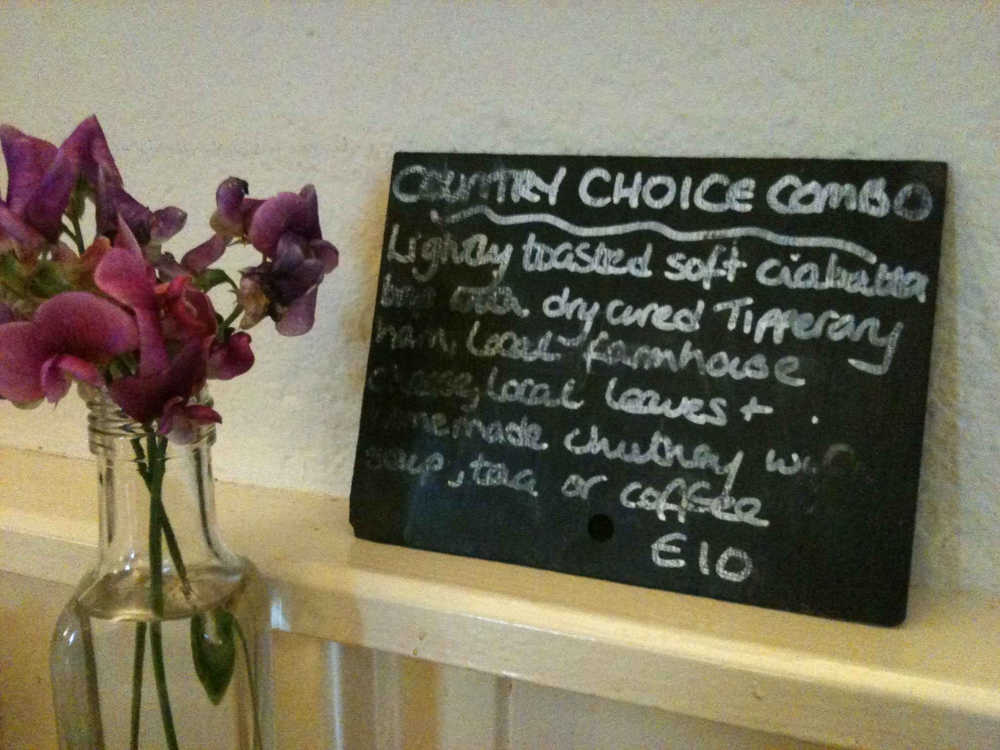 COUNTRY CHOICE COMBO
Lightly toasted soft ciabatta
with dry cured Tipperary
ham, Local farmhouse
cheese, Local leaves +
homemade chutney with
soup, tea or coffee
€10